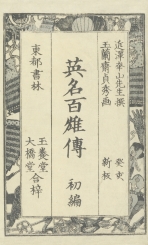 近澤幸山先生撰
玉蘭齋貞秀画
癸亥
新板
英名百雄傳
初編
東都書林
玉養堂
大橋堂
合梓